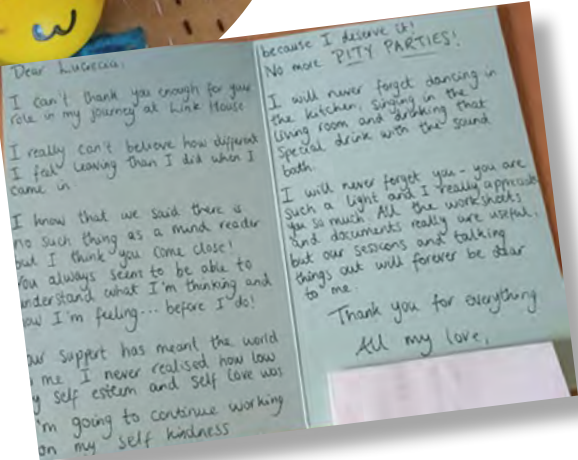 Dear Lucrecia,
I can't thank you enough for your
role in my journey at Link House
I really can't believe how different
I feel leaving than I did when I
came in
I know that we said there is
no such thing as a mind reader
but I think you come close!
You always seem to be able to
understand what I'm thinking and
how I'm feeling... before I do!
our support has meant the world
me I never realised how low
y self esteem and self love was
'm going to continue working
on my self kindness
because I deserve it!
No more "PITY PARTIES!
I will never forget dancing in
the kitchen, singing in the
living room and drinking that
special drink with the sound
bath.
I will never forget you - you are
such a light and I really appreciate
you so much All the worksheets
and documents really are useful,
but our sessions and talking
things out will forever be dear
to me.
Thank you for everything
All my love,